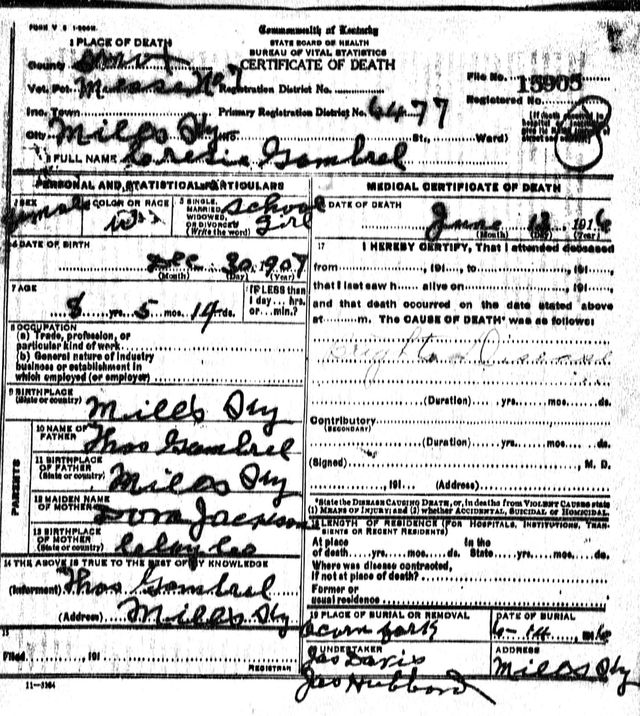 FORM V S 1-200M.
Commonwealth of Kentucky
STATE BOARD OF HEALTH
BUREAU OF VITAL STATISTICS
CERTIFICATE OF DEATH
1 PLACE OF DEATH
County
Vot. Pct. No 7 Registration District No.
File No. 15905
Inc. Town Primary Registration District No. 6477
Registered No.
City Mills Ky No. St., Ward)
[If death occurred in
2 FULL NAME Gambrel
PERSONAL AND STATISTICAL PARTICULARS
3 SEX Female
4 COLOR OR RACE W
5 SINGLE, MARRIED, WIDOWED, OR DIVORCED (Write the word) School Girl
6 DATE OF BIRTH
Dec 30, 1907
(Month) (Day) (Year)
7 AGE
8 yrs. 5 mos. 14 ds.
IF LESS than 1 day... hrs. or... min.?
8 OCCUPATION
(a) Trade, profession, or
particular kind of work
(b) General nature of industry
business or establishment in
which employed (or employer)
9 BIRTHPLACE
(State or country) Mills Ky
PARENTS
10 NAME OF FATHER Thos Gambrel
11 BIRTHPLACE OF FATHER (State or country) Mills Ky
12 MAIDEN NAME OF MOTHER Dora Jackson
13 BIRTHPLACE OF MOTHER (State or country) Clay Co
14 THE ABOVE IS TRUE TO THE BEST OF MY KNOWLEDGE
(Informant) Thos Gambrel
(Address) Mills Ky
15
Filed , 191
REGISTRAR
11-3184
MEDICAL CERTIFICATE OF DEATH
16 DATE OF DEATH
June 13, 1916
(Month) (Day) (Year)
17 I HEREBY CERTIFY, That I attended deceased
from , 191 , to , 191 ,
that I last saw h alive on , 191 ,
and that death occurred on the date stated above
at m. The CAUSE OF DEATH* was as follows:
Brights Disease
(Duration) yrs. mos. ds.
Contributory
(SECONDARY)
(Duration) yrs. mos. ds.
(Signed) , M. D.
, 191 (Address)
*State the DISEASE CAUSING DEATH, or, in deaths from VIOLENT CAUSES state
(1) MEANS OF INJURY; and (2) whether ACCIDENTAL, SUICIDAL or HOMICIDAL.
18 LENGTH OF RESIDENCE (FOR HOSPITALS, INSTITUTIONS, TRANSIENTS OR RECENT RESIDENTS)
At place of death yrs. mos. ds. In the State yrs. mos. ds.
Where was disease contracted,
If not at place of death?
Former or
usual residence
19 PLACE OF BURIAL OR REMOVAL
Acorn fork
DATE OF BURIAL
6-14, 1916
20 UNDERTAKER
Jas Davis
Jas Hubbard
ADDRESS
Mills Ky